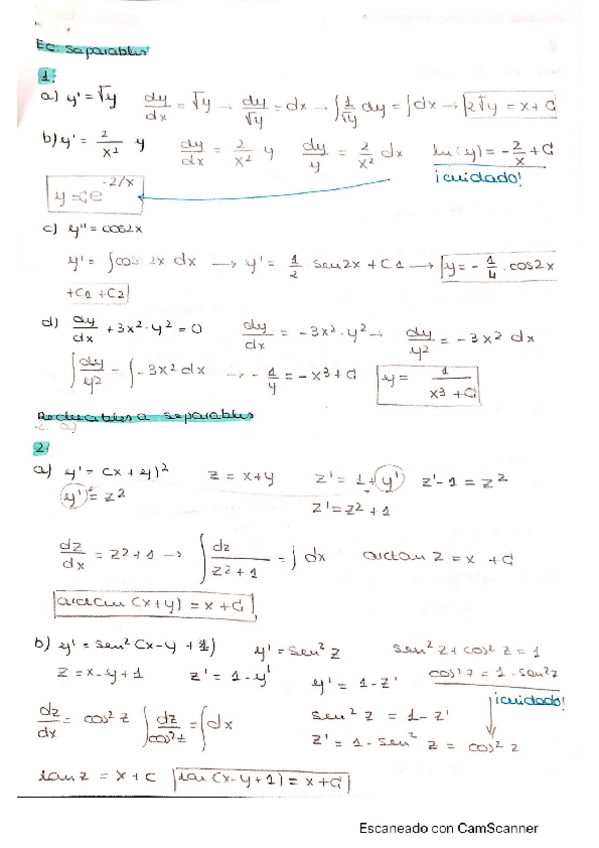 Ec. separables
1.
a) y' = √y   dy/dx = √y → dy/√y = dx → ∫ 1/√y dy = ∫ dx → 2√y = x + C
b) y' = 2/x² y   dy/dx = 2/x² y   dy/y = 2/x² dx   ln(y) = -2/x + C
y = Ce^-2/x   ¡cuidado!
c) y'' = cos2x
y' = ∫ cos 2x dx → y' = 1/2 sen2x + C1 → y = -1/4 · cos2x
+C1 +C2
d) dy/dx + 3x² · y² = 0   dy/dx = -3x² · y² → dy/y² = -3x² dx
∫ dy/y² = ∫ -3x² dx → -1/y = -x³ + C   y = 1/(x³ + C)
Reducibles a separables
2.
a) y' = (x + y)²   z = x+y   z' = 1 + y'   z' - 1 = z²
y' = z²   z' = z² + 1
dz/dx = z² + 1 → ∫ dz/(z² + 1) = ∫ dx   arctan z = x + C
arctan (x+y) = x + C
b) y' = sen² (x-y + 1)   y' = sen² z   sen² z + cos² z = 1
z = x-y+1   z' = 1 - y'   y' = 1 - z'   cos² z = 1 - sen² z
¡cuidado!
dz/dx = cos² z   ∫ dz/cos² z = ∫ dx   sen² z = 1 - z'
z' = 1 - sen² z = cos² z
tan z = x + C   tan (x-y+1) = x + C
Escaneado con CamScanner